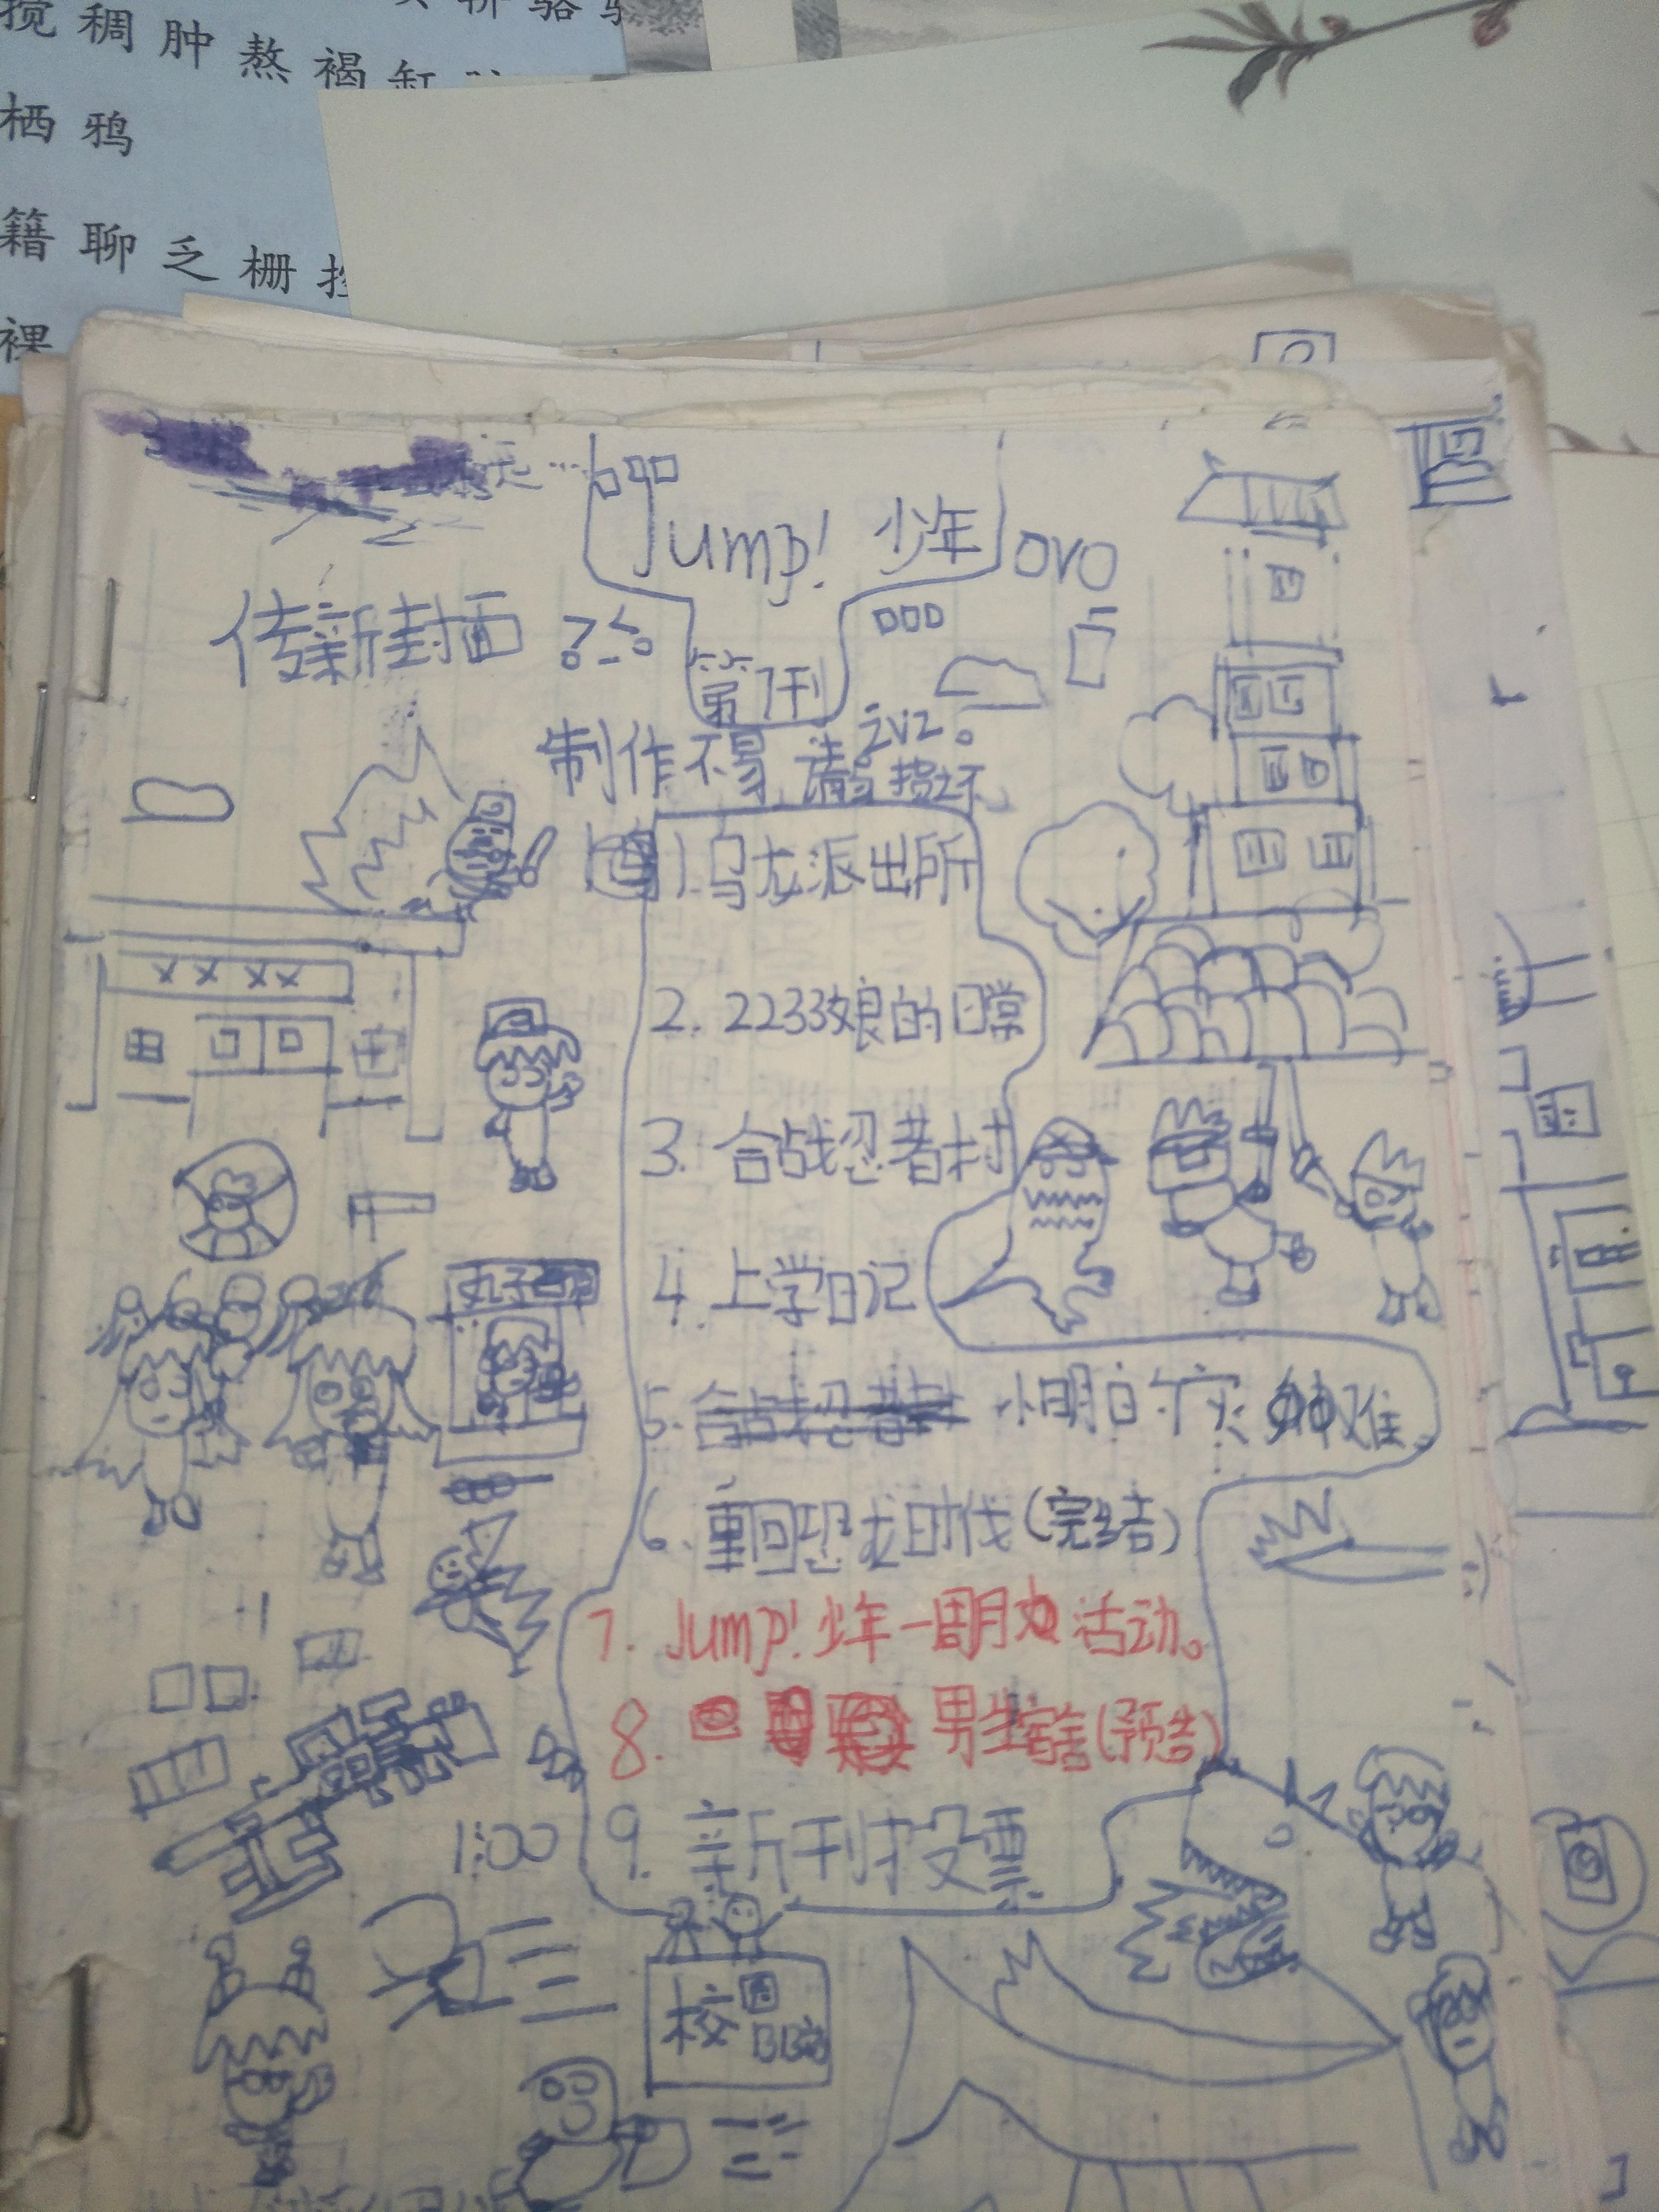 搅稠肿熬褐缸
栖鸦
籍聊乏栅
裸
Jump! 少年 OVO
传新封面
第7刊
制作不易，请勿损坏
2V2。
1.乌龙派出所
2. 2233娘的日常
3. 合战忍者村
4. 上学日记
5. 合战忍者村 小明的灾难
6. 重回恐龙时代(完结)
7. Jump!少年一周年活动。
8. 男生宿舍(预告)
9. 新刊投票
XXXX
丸子
1:00
校园